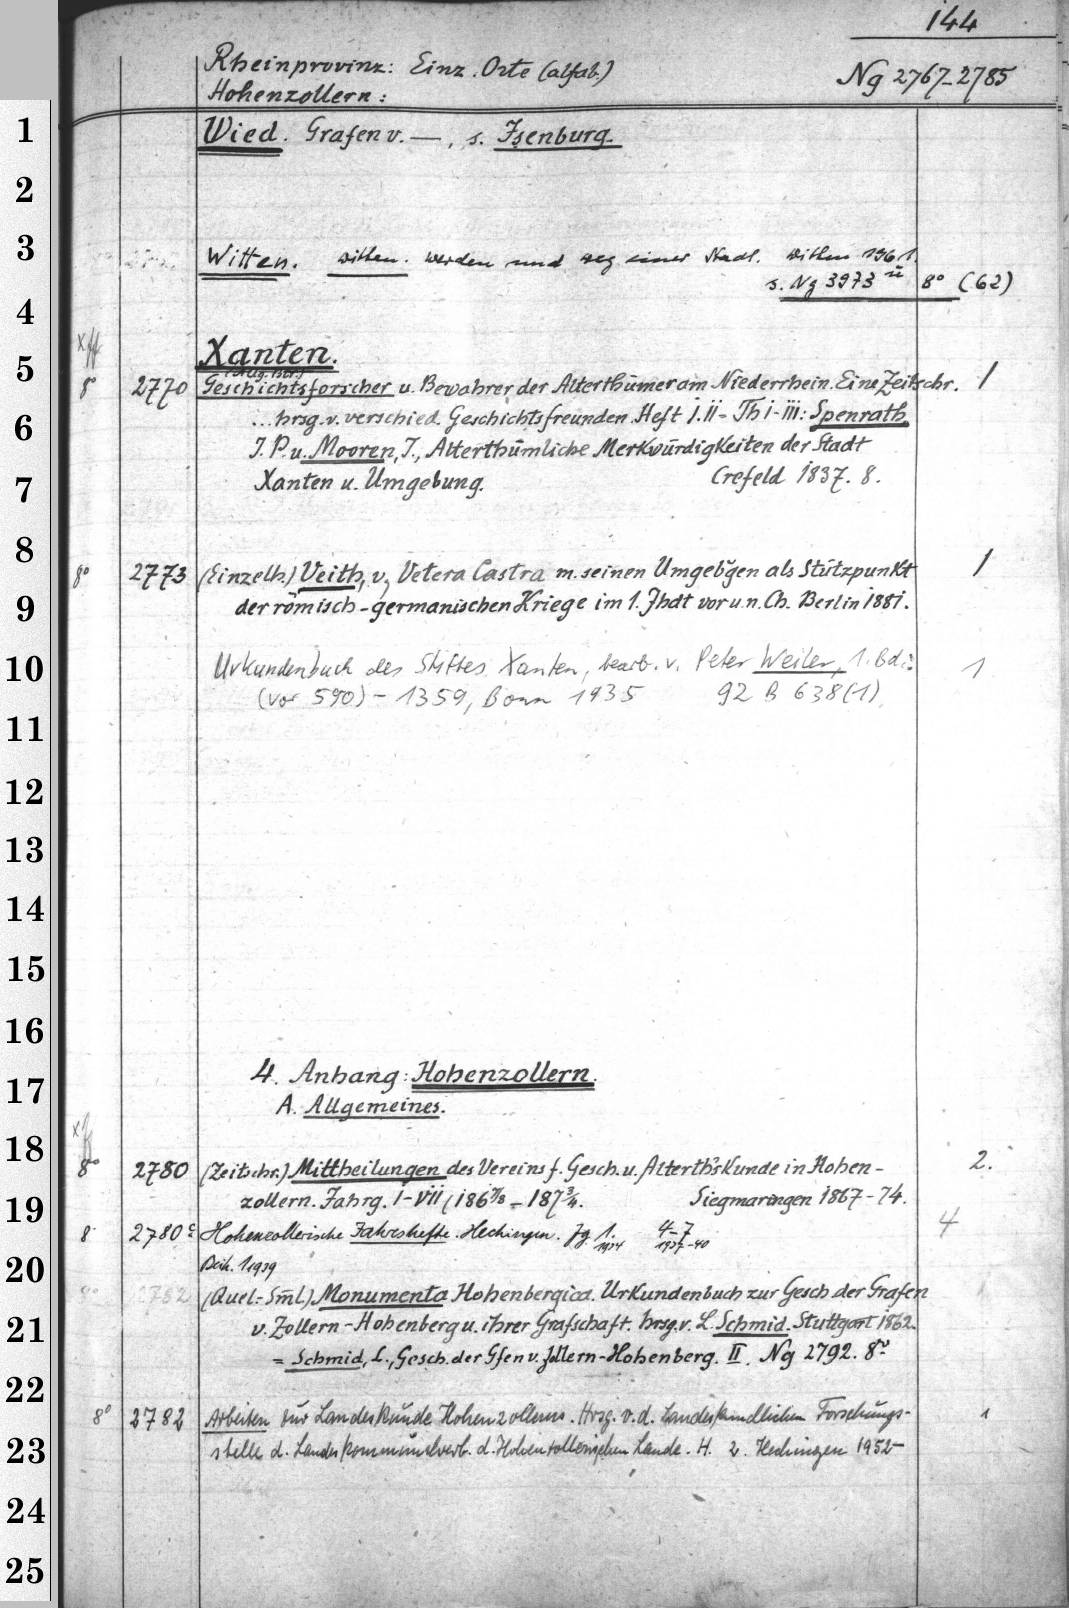 144
Rheinprovinz: Einz. Orte (alfab.)
Hohenzollern:
Ng 2767-2785
1 Wied. Grafen v. —, s. Isenburg.
2
3 Witten. Witten. Werden und Weg einer Stadt. Witten 1961.
s. Ng 3973 ü 8° (62)
4
Xff
5 Xanten.
8° 2770 Geschichtsforscher u. Bewahrer der Alterthümer am Niederrhein. Eine Zeitschr. 1
6 ...hrsg. v. verschied. Geschichtsfreunden. Heft I.II = Th I-III: Spenrath,
J. P. u. Mooren, J., Alterthümliche Merkwürdigkeiten der Stadt
7 Xanten u. Umgebung. Crefeld 1837. 8.
8
8° 2773 (Einzelh.) Veith, v., Vetera Castra m. seinen Umgebgen als Stützpunkt 1
9 der römisch-germanischen Kriege im 1. Jhdt vor u. n. Ch. Berlin 1881.
10 Urkundenbuch des Stiftes Xanten, bearb. v. Peter Weiler, 1. Bd.: 1
(vor 590) - 1359, Bonn 1935 92 B 638(1)
11
12
13
14
15
16
17 4. Anhang: Hohenzollern.
A. Allgemeines.
18
8° 2780 (Zeitschr.) Mittheilungen des Vereins f. Gesch. u. Alterthskunde in Hohen- 2.
19 zollern. Jahrg. I-VII (1867/8 - 1873/4. Siegmaringen 1867-74.
8° 2780c Hohenzollerische Jahreshefte. Hechingen. Jg. 1. 1934 4-7 1937-40 4
20 Beih. 1 1939
2782 (Quel.-Sml) Monumenta Hohenbergica. Urkundenbuch zur Gesch. der Grafen
21 v. Zollern-Hohenberg u. ihrer Grafschaft. hrsg. v. L. Schmid. Stuttgart 1862.
= Schmid, L., Gesch. der Gfen v. Zollern-Hohenberg. II. Ng 2792. 8°
22
8° 2782 Arbeiten zur Landeskunde Hohenzollerns. Hrsg. v. d. Landeskundlichen Forschungs- 1
23 stelle d. Landeskommunalverb. d. Hohenzollerischen Lande. H. 2. Hechingen 1952-
24
25